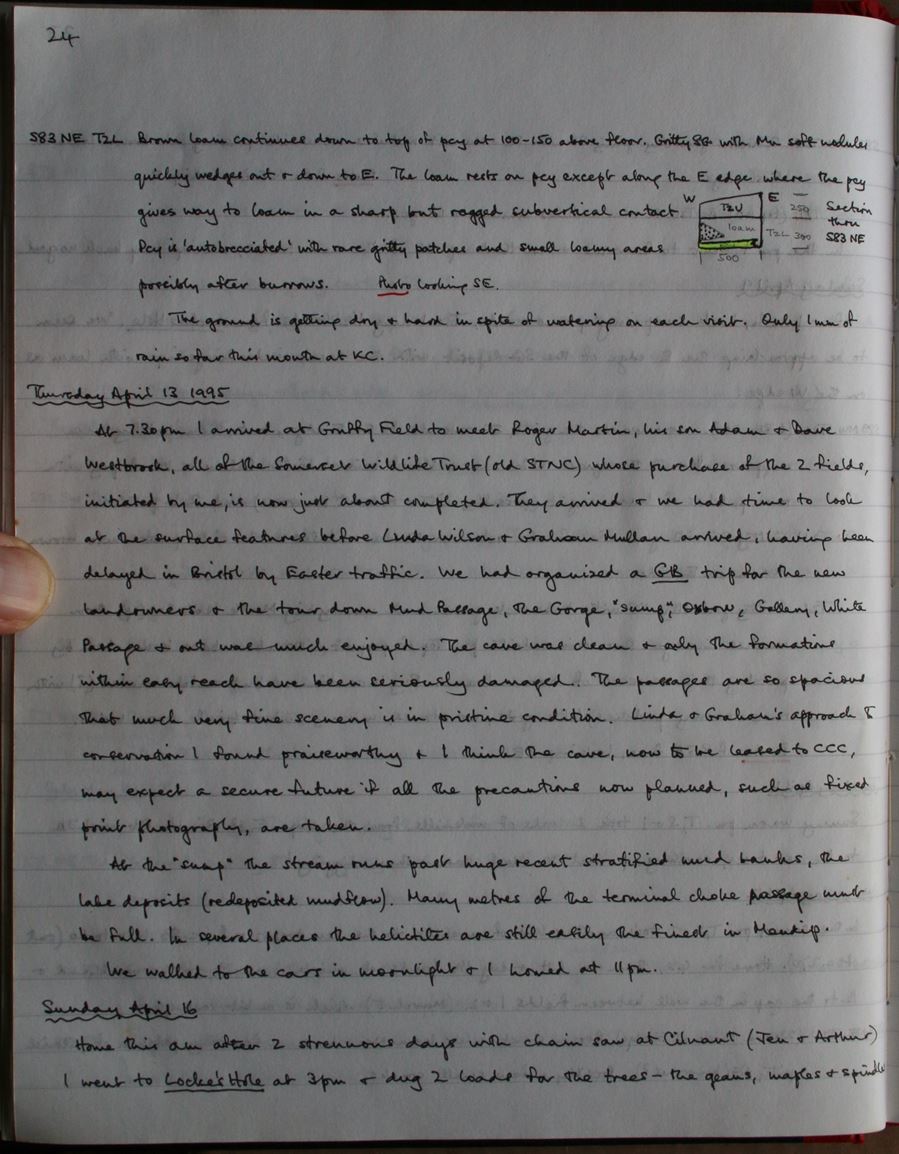 24
S83 NE T2L Brown loam continues down to top of pcy at 100-150 above floor. Gritty SG with Mn soft nodules
quickly wedges out & down to E. The loam rests on pcy except along the E edge where the pcy
gives way to loam in a sharp but ragged subvertical contact.
W E
T2U
loam
250
T2L 300
500
Section
thru
S83 NE
Pcy is 'autobrecciated' with rare gritty patches and small loamy areas
possibly after burrows. Photo looking SE.
The ground is getting dry & hard in spite of watering on each visit. Only 1mm of
rain so far this month at KC.
Thursday April 13 1995
At 7.30pm I arrived at Gruffy Field to meet Roger Martin, his son Adam & Dave
Westbrook, all of the Somerset Wildlife Trust (old STNC) whose purchase of the 2 fields,
initiated by me, is now just about completed. They arrived & we had time to look
at the surface features before Linda Wilson & Graham Mullan arrived, having been
delayed in Bristol by Easter traffic. We had organized a GB trip for the new
landowners & the tour down Mud Passage, the Gorge, "sump", Oxbow, Gallery, White
Passage & out was much enjoyed. The cave was clean & only the formations
within easy reach have been seriously damaged. The passages are so spacious
that much very fine scenery is in pristine condition. Linda & Graham's approach to
conservation I found praiseworthy & I think the cave, now to be leased to CCC,
may expect a secure future if all the precautions now planned, such as fixed
point photography, are taken.
At the "sump" the stream runs past huge recent stratified mud banks, the
lake deposits (redeposited mudflow). Many metres of the terminal choke passage must
be full. In several places the helictites are still easily the finest in Mendip.
We walked to the cars in moonlight & I homed at 11pm.
Sunday April 16
Home this am after 2 strenuous days with chain saw at Cilnant (Jen & Arthur)
I went to Locke's Hole at 3pm & dug 2 loads for the trees - the geans, maples & spindle